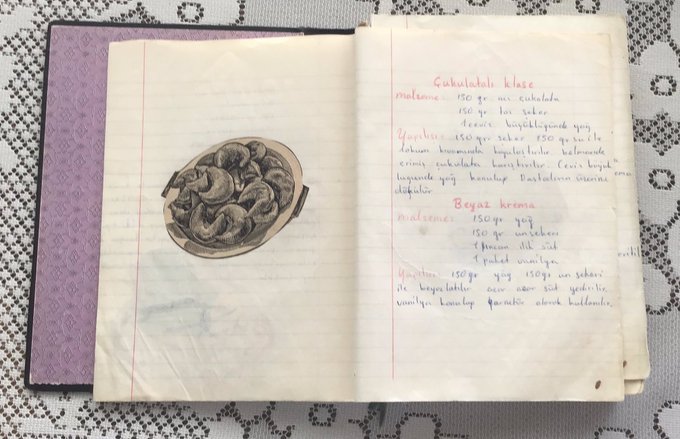 Çukulatalı klase
malzeme: 150 gr. çukulata
150 gr toz şeker
1 ceviz büyüklüğünde yağ
Yapılışı: 150 gr. şeker 150 gr su ile
lokum kıvamında koyulaştırılır.
erimiş çukulata karıştırılır. Ceviz büyük
lüğünde yağ konulup Pastaların üzerine
dökülür.
Beyaz krema
malzeme: 150 gr yağ
150 gr un şekeri
1 fincan ılık süt
1 paket vanilya
Yapılışı 150 gr yağ 150 gr un şekeri
ile beyazlatılır azar azar süt yedirilir
vanilya konulup olarak kullanılır.